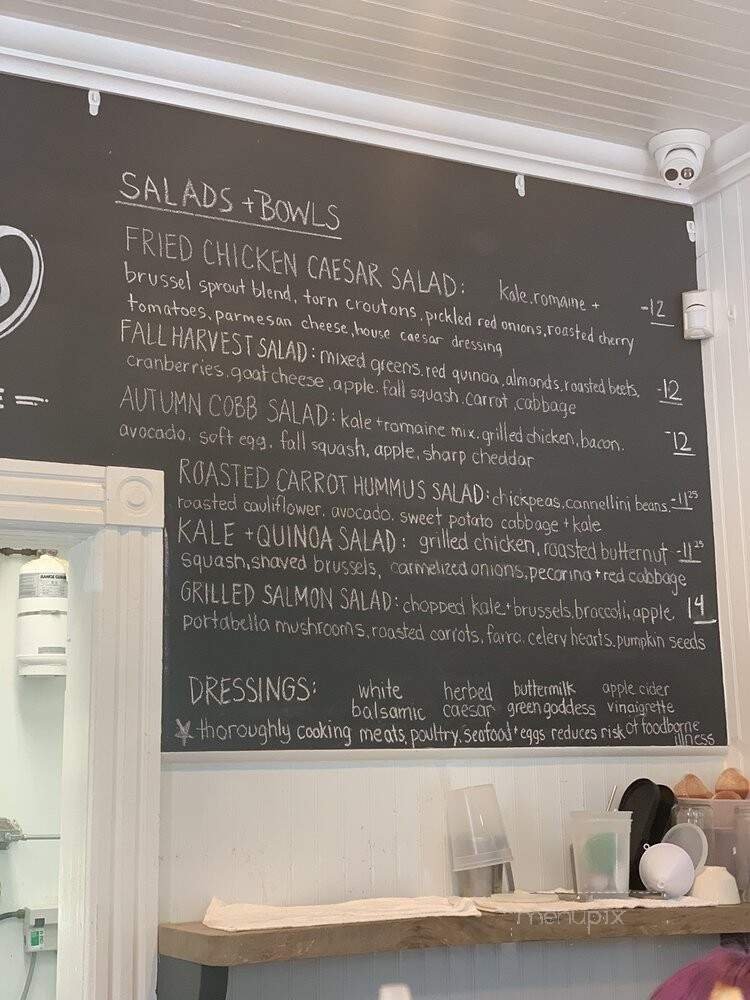 SALADS + BOWLS
FRIED CHICKEN CAESAR SALAD: kale, romaine + -12
brussel sprout blend, torn croutons, pickled red onions, roasted cherry
tomatoes, parmesan cheese, house caesar dressing
FALL HARVEST SALAD: mixed greens, red quinoa, almonds, roasted beets, -12
cranberries, goat cheese, apple, fall squash, carrot, cabbage
AUTUMN COBB SALAD: kale + romaine mix, grilled chicken, bacon, -12
avocado, soft egg, fall squash, apple, sharp cheddar
ROASTED CARROT HUMMUS SALAD: chickpeas, cannellini beans, -11 25
roasted cauliflower, avocado, sweet potato cabbage + kale
KALE + QUINOA SALAD: grilled chicken, roasted butternut -11 25
squash, shaved brussels, carmelized onions, pecorino + red cabbage
GRILLED SALMON SALAD: chopped kale + brussels, broccoli, apple, 14
portabella mushrooms, roasted carrots, farro, celery hearts, pumpkin seeds
DRESSINGS: white herbed buttermilk apple cider
balsamic caesar green goddess vinaigrette
thoroughly cooking meats, poultry, seafood + eggs reduces risk of foodborne
illness
menupix